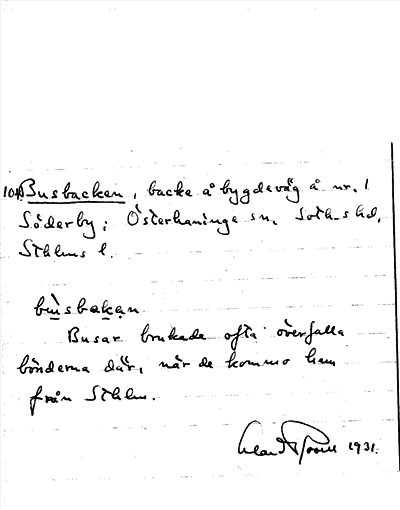 104) Busbacken, backe å bygdeväg å nr. 1
Söderby; Österhaninge sn. Soth-s hd,
Sthlms l.
bùsbakan
Busar brukade ofta överfalla
bönderna där, när de kommo hem
från Sthlm.
1931.